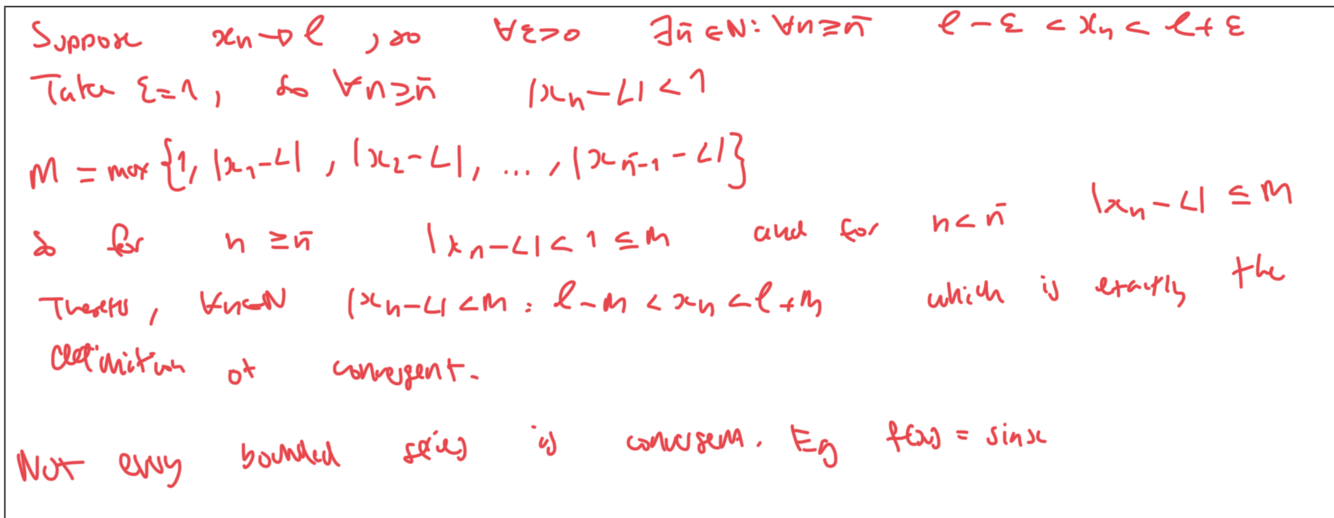 Suppose xn → l, so ∀ε>0 ∃n̄ ∈ N: ∀n≥n̄ l - ε < xn < l + ε
Take ε=1, so ∀n≥n̄ |xn-L| < 1
M = max {1, |x1-L|, |x2-L|, ..., |xn̄-1 - L|}
So for n ≥ n̄ |xn-L| < 1 ≤ M and for n < n̄ |xn - L| ≤ M
∀n∈N |xn-L| < M : l - M < xn < l + M which is exactly the
definition of convergent.
Not every bounded series is convergent. Eg f(x) = sinx